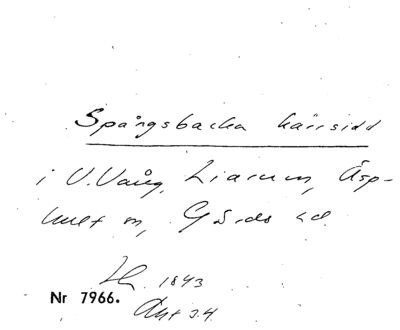 Spångsbacka kärrsidd
i V. Vång, Liarum, Äsp-
hult sn, Gärds hd.
1843
Nr 7966. Akt 34